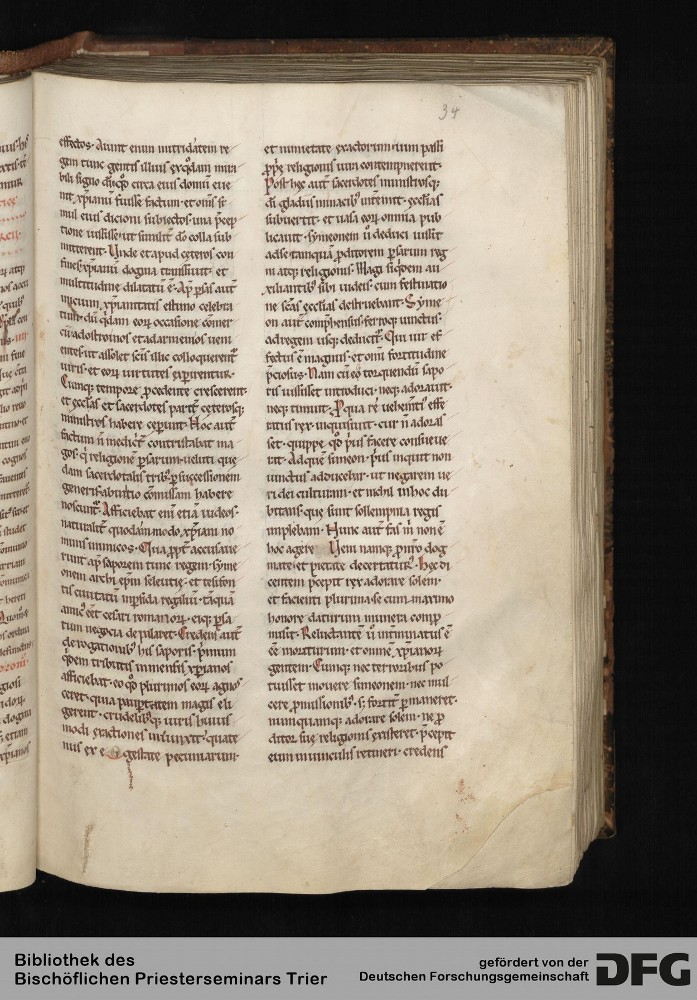 34
effectos. Aiunt enim mitridatem re
gem tunc gentis illius ex quodam mira
bili signo
circa eius domum eue
nit xpianum fuisse factum. et omnes si
mul eius dicioni subiectos. una p̄cep
tione iussisse. ut similit̄ dō colla sub
mitterent. Unde et apud ceteros con
fines. xpianum dogma transiuit. et
multitudine dilatatū ē. Ap̄ p̄sas aut̄
xpianitatis estimo celebra
tum. dū quidam eorū occasione cōmer
cii ad ostroinos et ad armenios ueni
entes. ut assolet scīs illic colloquerent̄
uiris. et eorū uirtutes expirentur.
Cumq; tempore p̄cedente crescerent.
et ecclas et sacerdotes parit̄ ceterosq;
ministros habere ceperunt. Hoc aut̄
factum n̄ mediocrit̄ contristabat ma
gos. qui religionē p̄sarum. ueluti que
dam sacerdotalis tribus p̄ successionem
generis ab initio cōmissam habere
noscunt̄. Afficiebat enī etiā iudeos.
naturalit̄ quodammodo. xpianam no
minis inimicos. Qua p̄pt̄ accusaue
runt ap̄ saporem tunc regem. syme
onem archi ep̄m seleucie. et tesifon
tis ciuitatū in p̄sida regaliū. tāquā
amic' ēēt cesari romanorū. eiq; p̄sa
rum negocia depilaret. Credens aut̄
derogationib; his saporis. p̄mum
q̄dem tributis inmensis xpianos
afficiebat. eo qd̄ plurimos eorū agnos
ceret. quia paup̄tatem magis eli
gerent. crudelibq; uiris huius
modi exactiones iniunxit. quate
nus ex e gestate pecuniarum.
et nimietate exactorum. uim passi
p̄p̄ religionis uim contempnerent.
Post hec aut̄ sacerdotes ministrosq;
dī gladiis minacib; interimit. ecclesias
subuertit. et uasa eorū omnia pub
licauit. symeonem ū deduci iussit
ad se. tanquā p̄ditorem p̄sarum reg
ni atq; religionis. Magi siquidem au
xiliantib; sibi iudeis. cum festinatio
ne scās ecclesias destruebant. Syme
on aut̄ comp̄hensus. ferroq; uinctus.
ad regem usq; deducit̄. Qui uir ef
fectus ē magnus. et omni fortitudine
p̄ciosus. Nam cū eū torquendū sapo
ris iussisset introduci. neq; adorauit.
neq; timuit. P̄ qua re uehement̄ effe
ratus rex inquisiuit. cur n̄ adoras
set. quippe qd̄ p̄us facere consueue
rat. Ad quē simeon. p̄us inquit non
uinctus adducebar. ut negarem ue
ri dei culturam. et nichil in hoc du
bitans. que sunt sollempnia regis
implebam. Nunc aut̄ fas m̄ non ē
hoc agere. Uem namq; p̄ nr̄o dog
mate. et pietate decertatur̄. Hec di
centem p̄cepit rex adorare solem.
et facienti plurima. se cum maximo
honore daturum munera comp
misit. Reluctante ū interminatus ē
ēē moriturum. et omnē xpianorū
gentem. Cumq; nec terroribus po
tuisset mouere simeonem. nec mul
cere p̄missionib;. s; fortit̄ p̄maneret.
nunquamq; adorare solem. ne p̄
ditor sue religionis existeret. p̄cepit
eum in uinculis retineri. credens
Bibliothek des
Bischöflichen Priesterseminars Trier
gefördert von der
Deutschen Forschungsgemeinschaft
DFG